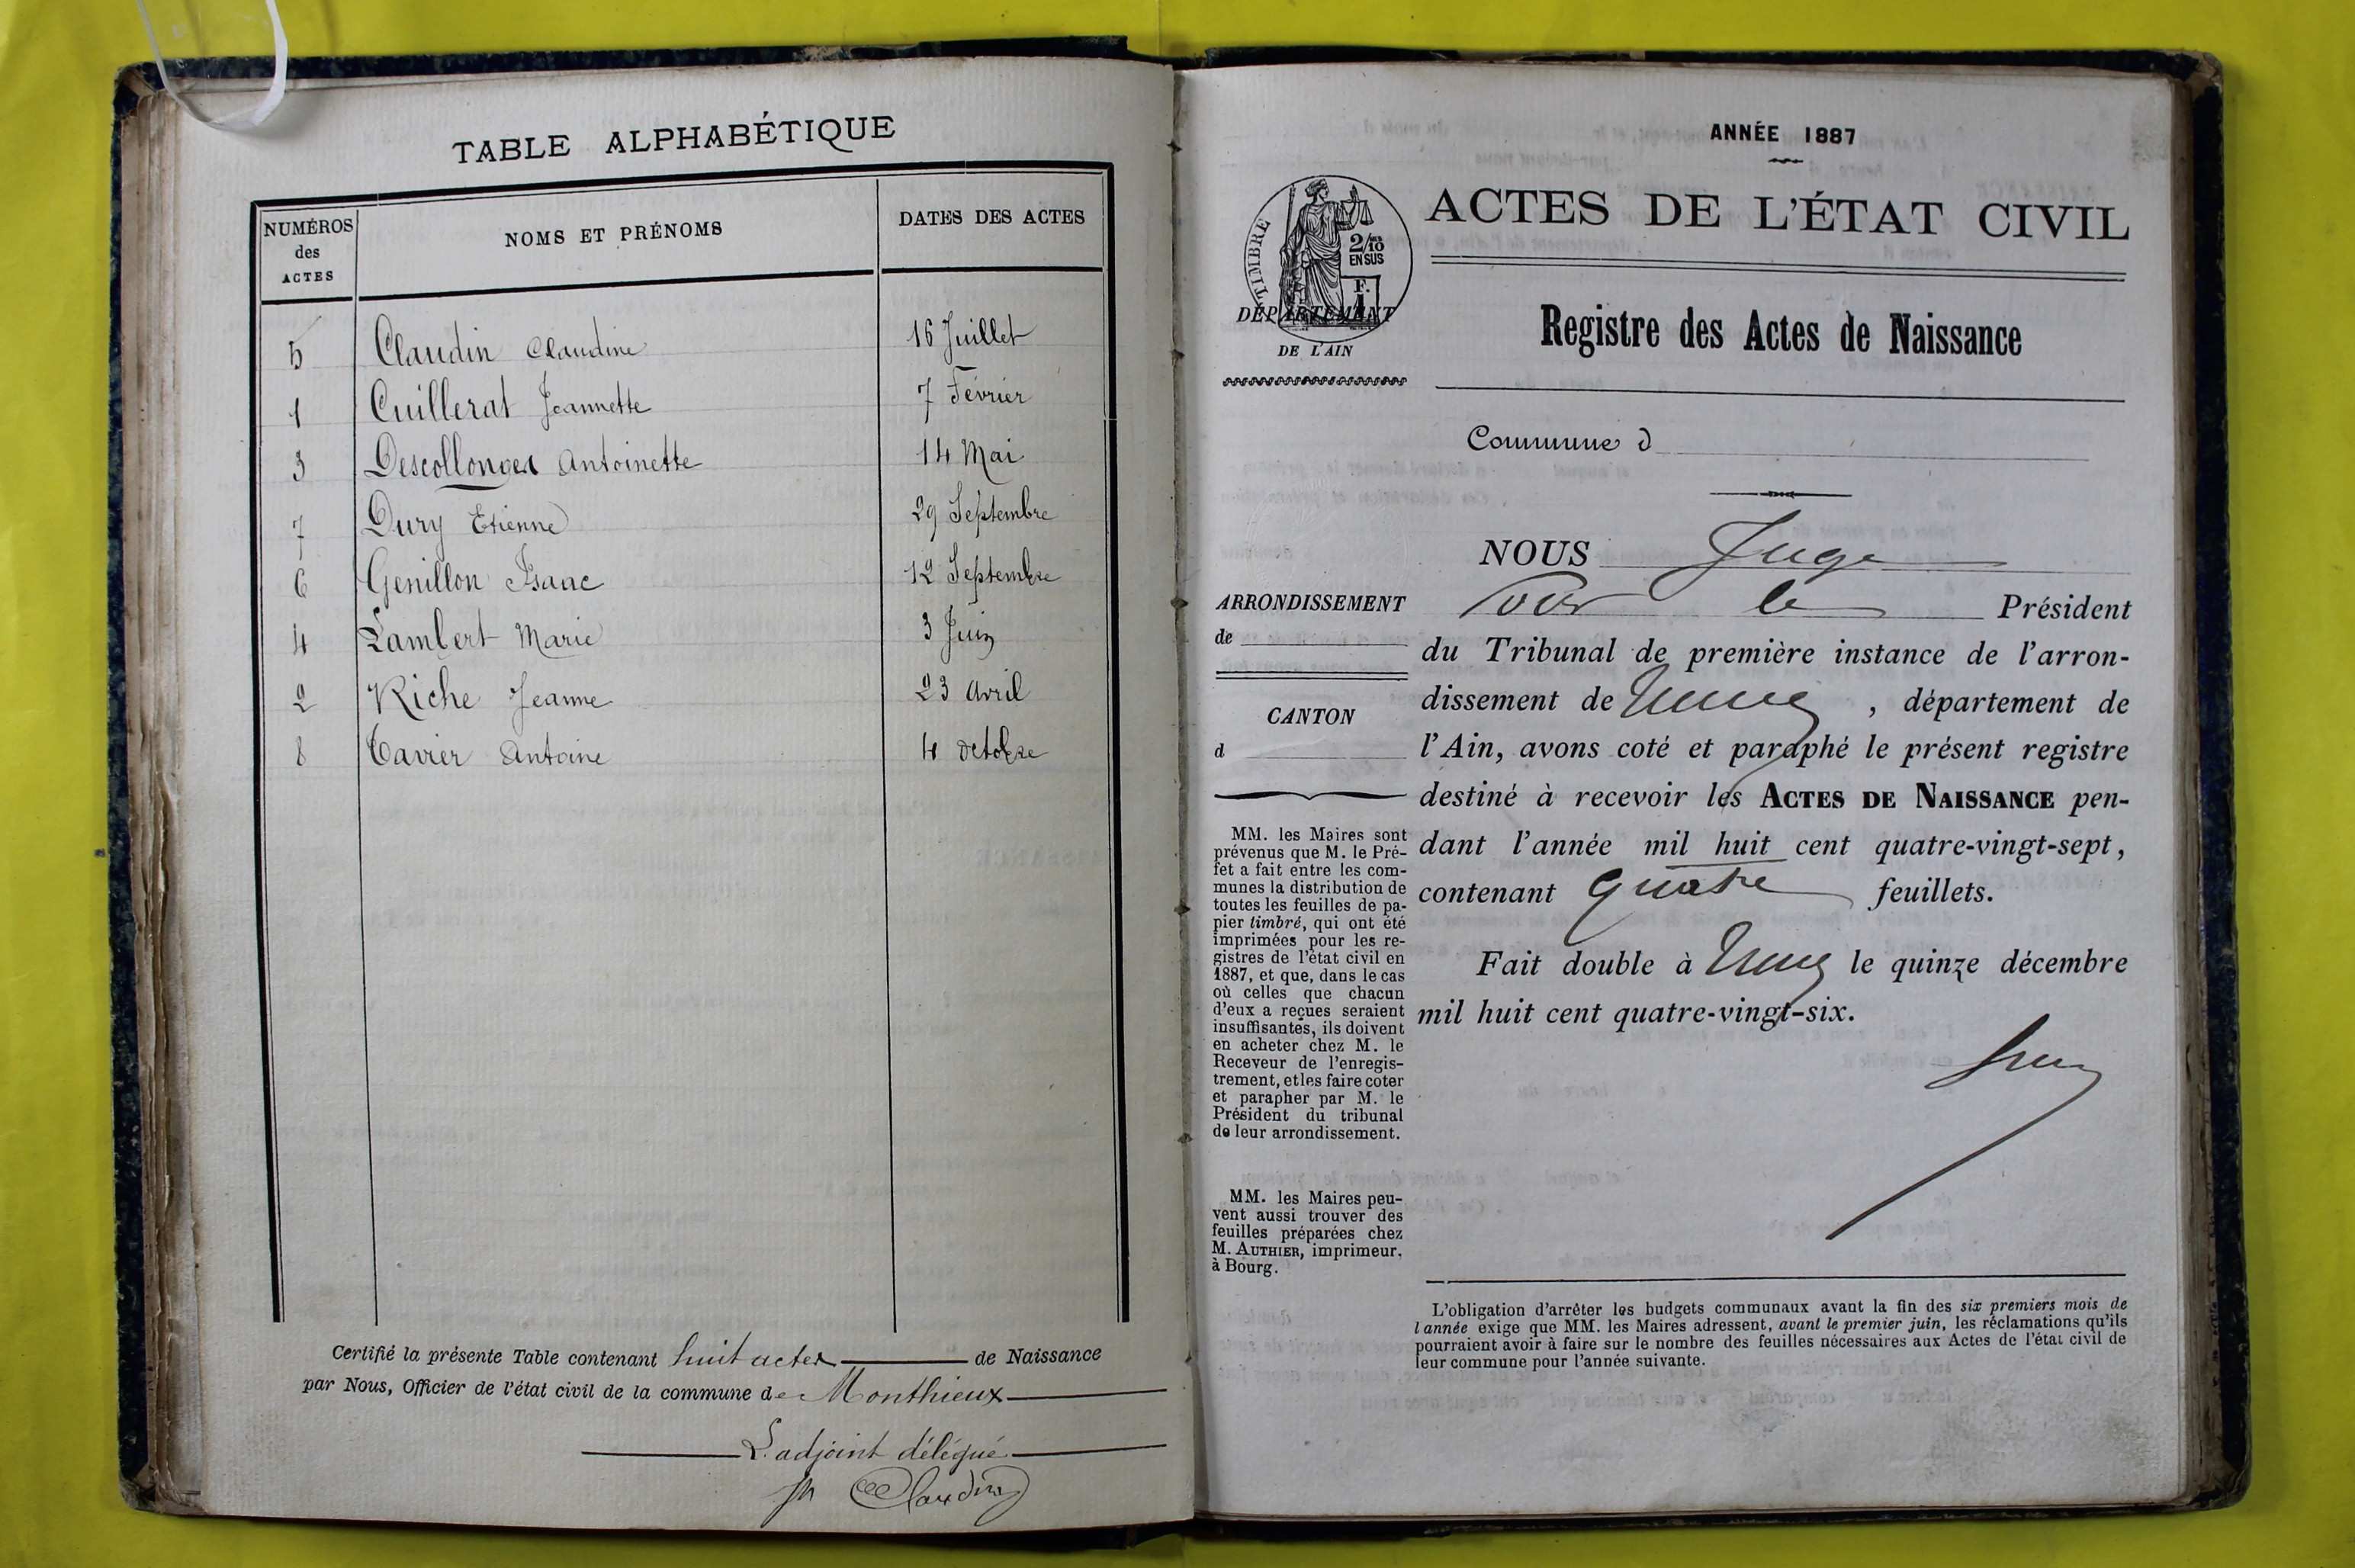 TABLE ALPHABÉTIQUE
NUMÉROS
des
ACTES
NOMS ET PRÉNOMS
DATES DES ACTES
5 Claudin Claudine 16 Juillet
1 Cuillerat Jeannette 7 Février
3 Descollonges Antoinette 14 Mai
7 Dury Etienne 29 Septembre
6 Genillon Isaac 12 Septembre
4 Lambert Marie 3 Juin
2 Riche Jeanne 23 Avril
8 Tavier Antoine 4 Octobre
Certifié la présente Table contenant huit actes de Naissance
par Nous, Officier de l'état civil de la commune de Monthieux
L'adjoint délégué
Claudin
ANNÉE 1887
TIMBRE
2/10
EN SUS
F.
1
DÉPARTEMENT
DE L'AIN
ACTES DE L'ÉTAT CIVIL
Registre des Actes de Naissance
Commune d
ARRONDISSEMENT
de
CANTON
d
MM. les Maires sont
prévenus que M. le Pré-
fet a fait entre les com-
munes la distribution de
toutes les feuilles de pa-
pier timbré, qui ont été
imprimées pour les re-
gistres de l'état civil en
1887, et que, dans le cas
où celles que chacun
d'eux a reçues seraient
insuffisantes, ils doivent
en acheter chez M. le
Receveur de l'enregis-
trement, et les faire coter
et parapher par M. le
Président du tribunal
de leur arrondissement.
MM. les Maires peu-
vent aussi trouver des
feuilles préparées chez
M. AUTHIER, imprimeur,
à Bourg.
NOUS Juge
pour le Président
du Tribunal de première instance de l'arron-
dissement de , département de
l'Ain, avons coté et paraphé le présent registre
destiné à recevoir les ACTES DE NAISSANCE pen-
dant l'année mil huit cent quatre-vingt-sept,
contenant quatre feuillets.
Fait double à le quinze décembre
mil huit cent quatre-vingt-six.
L'obligation d'arrêter les budgets communaux avant la fin des six premiers mois de
l'année exige que MM. les Maires adressent, avant le premier juin, les réclamations qu'ils
pourraient avoir à faire sur le nombre des feuilles nécessaires aux Actes de l'état civil de
leur commune pour l'année suivante.